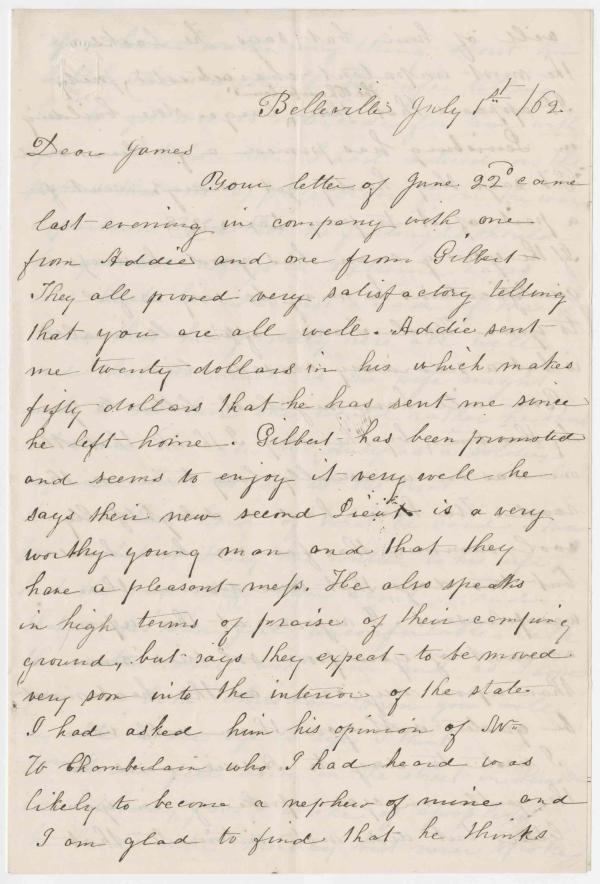 Belleville July 1st /62.
Dear James
Your letter of June 22d came
last evening in company with one
from Addie and one from Gilbert
They all proved very satisfactory telling
that you are all well. Addie sent
me twenty dollars in his which makes
fifty dollars that he has sent me since
he left home. Gilbert has been promoted
and seems to enjoy it very well he
says their new second Lieut is a very
worthy young man and that they
have a pleasant mess. He also speaks
in high terms of praise of their camping
ground, but says they expect to be moved
very soon into the interior of the state
I had asked him his opinion of Wm
W Chamberlain who I had heard was
likely to become a nephew of mine and
I am glad to find that he thinks